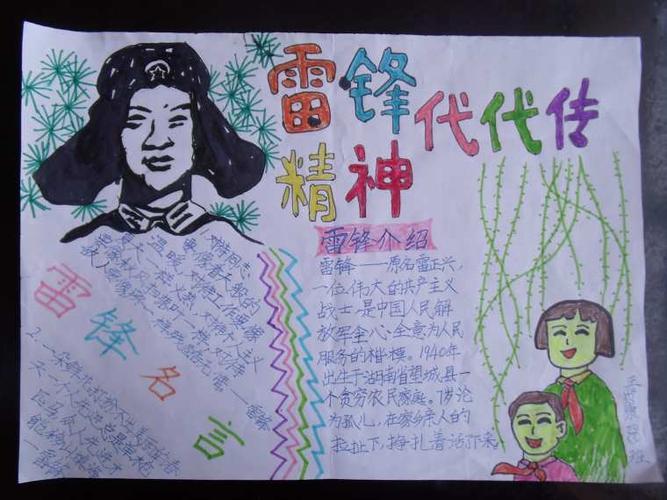 雷锋
精神
代代传
雷锋介绍
雷锋——原名雷正兴,
一位伟大的共产主义
战士,是中国人民解
放军全心全意为人民
服务的楷模。1940年
出生于湖南省望城县一
个贫穷农民家庭。7岁沦
为孤儿,在家乡亲人的
拉扯下,挣扎着活下来
雷锋名言
对待同志
要像春天般的
温暖,对待工作要像
夏天一样火热,对待个人主义
要像秋风扫落叶一样,对待
敌人要像严冬一样残酷无情。——雷锋
2.一朵鲜花打扮不出美丽的春
天,一个人先进总是单枪
匹马,众人先进才
能移山填海
——雷锋